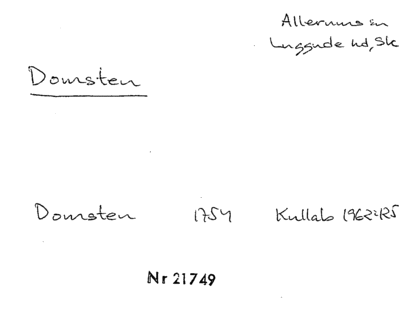 Allerums sn
Luggude hd, Sk
Domsten
Domsten 1754 Kullab 1962:125
Nr 21749